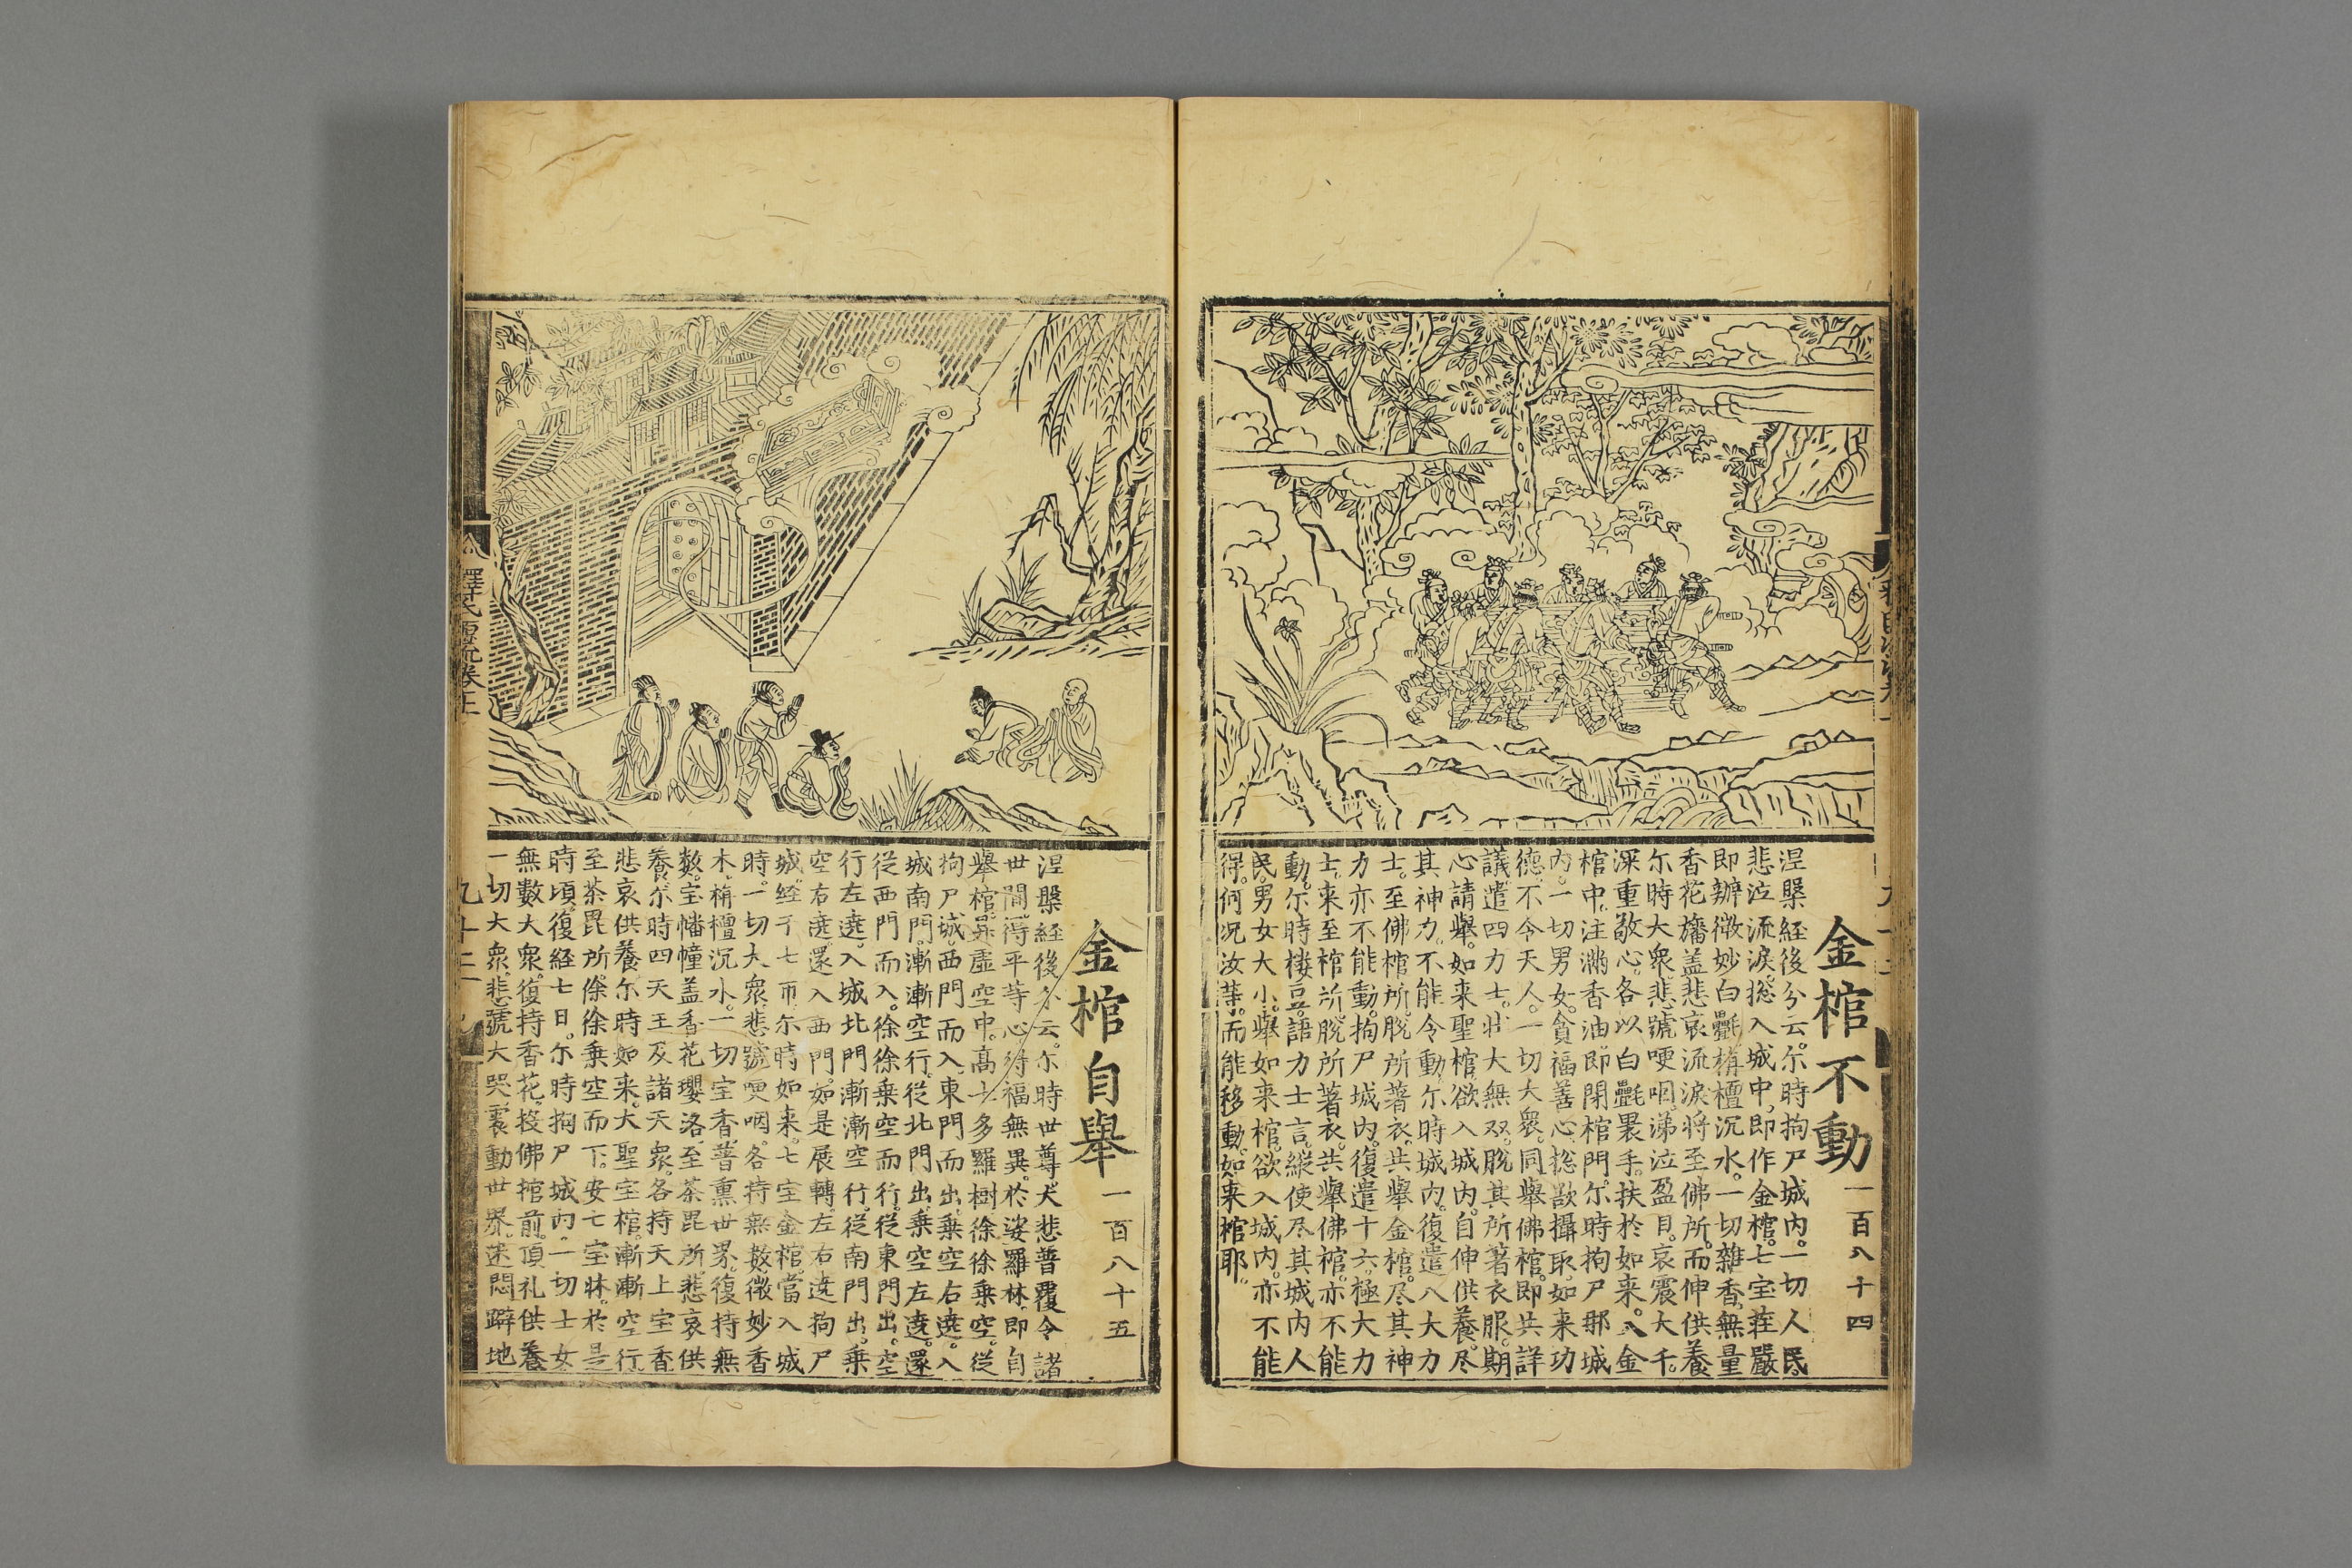 金棺不動
一百八十四
涅槃経後分云。尓時拘尸城内。一切人民。
悲泣流淚。捴入城中。即作金棺。七宝莊嚴
即辦微妙白㲲栴檀沉水。一切雜香無量
香花旛盖悲哀流淚。将至佛所。而伸供養
尓時大衆悲號哽咽。涕泣盈目。哀震大千。
深重敬心。各以白㲲褁手。扶於如来。入金
棺中。注滿香油。即閉棺門。尓時拘尸那城
内。一切男女。貪福善心。捴欲攝取。如来功
德。不令天人。一切大衆。同舉佛棺。即共詳
議。遣四力士。壮大無双。脫其所著衣服。期
心請舉。如来聖棺。欲入城内。自伸供養。尽
其神力。不能令動。尓時城内。復遣八大力
士。至佛棺所。脫所著衣。共舉金棺。尽其神
力亦不能動。拘尸城内。復遣十六。極大力
士。来至棺所。脫所著衣。共舉佛棺。亦不能
動。尓時楼逗。語力士言。縱使尽其城内人
民。男女大小。舉如来棺。欲入城内。亦不能
得。何况汝等。而能移動。如来棺耶。
金棺自舉
一百八十五
涅槃経後分云。尓時世尊。大悲普覆。令諸
世間。得平等心。得福無異。於娑羅林。即自
舉棺。昇虛空中。高七多羅樹。徐徐乗空。従
拘尸城。西門而入。東門而出。乗空右遶。入
城南門。漸漸空行。従北門出。乗空左遶。還
従西門而入。徐徐乗空而行。従東門出。空
行左遶。入城北門。漸漸空行。従南門出。乗
空右遶。還入西門。如是展轉。左右遶拘尸
城。経于七帀。尓時如来。七宝金棺。當入城
時。一切大衆。悲號哽咽。各持無数。微妙香
木。栴檀沉水。一切宝香。普熏世界。復持無
数。宝幡幢盖。香花瓔洛。至荼毘所。悲哀供
養。尓時四天王及諸天衆。各持天上宝香
悲哀供養。尓時如来。大聖宝棺。漸漸空行
至荼毘所。徐徐乗空而下。安七宝牀。於是
時頃。復経七日。尓時拘尸城内。一切士女
無數大衆。復持香花。投佛棺前。頂礼供養
一切大衆。悲號大哭。震動世界。迷悶躃地
釋氏源流卷上
九十二